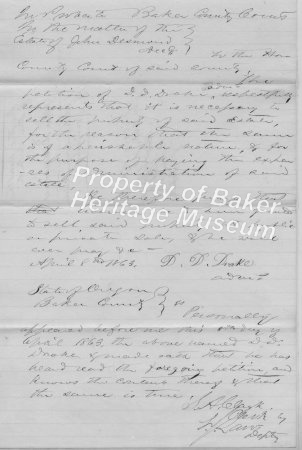 In Probate Baker County Court
In the matter of the
Estate of John Desmond
decd
To the Hon
County Court of said County
The
petition of D. D. Drake admr respectfully
represents that it is necessary to
sell the property of said Estate,
for the reason that the same
is of a perishable nature, & for
the purpose of paying the expen-
ses of administration of said
estate
that
to sell said
or private sale, & he will
ever pray &c
April 8th 1863. D. D. Drake
admr
State of Oregon
Baker County ss
Personally
appeared before me this day of
April 1863, the above named D. D.
Drake & made oath that he has
heard read the foregoing petition, and
knows the contents thereof & that
the same is true
Clark
Clerk
By
Depty
Property of Baker
Heritage Museum